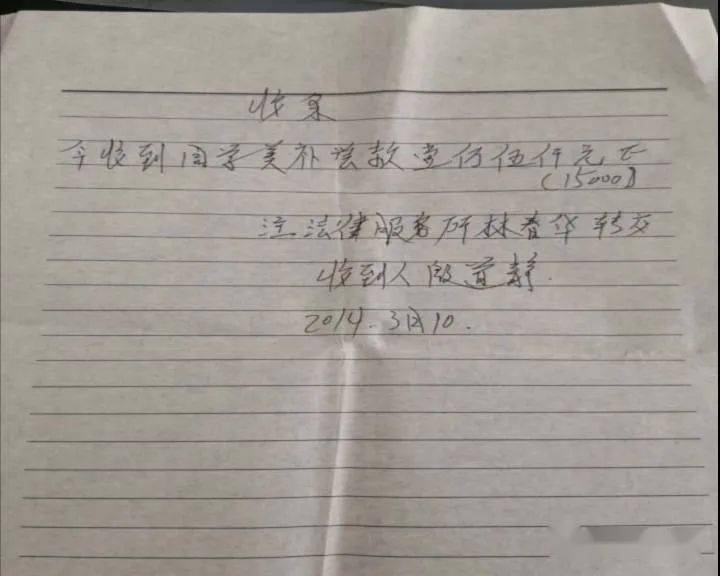 收条
今收到周学美补偿款壹仟伍仟元正
(15000)
注法律服务所林春华转交
收到人段道静.
2014.3月10.